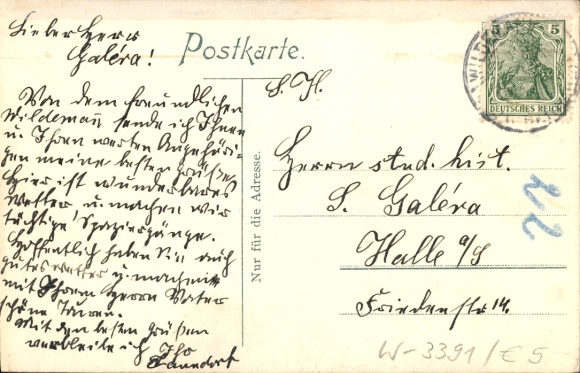 Lieber Herr
Galéra!
Von dem freundlichen
Wildemann sende ich Ihnen
u. Ihren werten Angehöri-
gen meine besten Grüße.
Hier ist wunderbares
Wetter u. machen wir
tüchtige Spaziergänge.
Hoffentlich haben Sie auch
gutes Wetter u. machen
mit Ihrem Herrn Vater
schöne Turen.
Mit den besten Grüßen
verbleibe ich Ihr
Postkarte.
Nur für die Adresse.
S. Hl.
Herrn stud. hist.
S. Galéra
Halle a/S
Friedenstr 14.
5 5
DEUTSCHES REICH
22
W-3391/€5